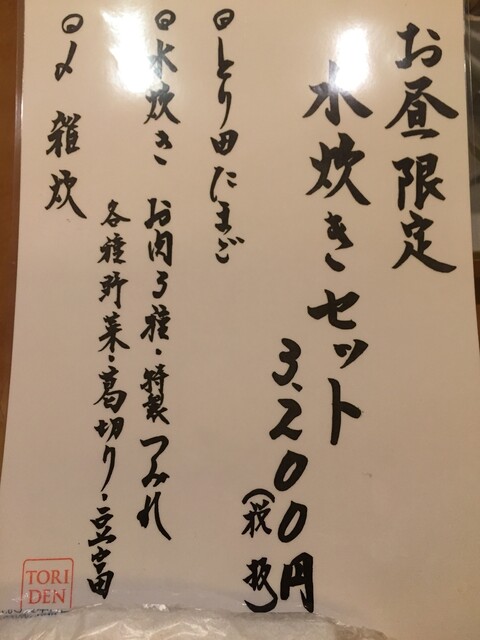 お昼限定
水炊きセット
3,200円
(税抜)
◎とり田たまご
◎水炊き お肉3種・特製つみれ
各種野菜・葛切り・豆富
◎〆 雑炊
TORI
DEN